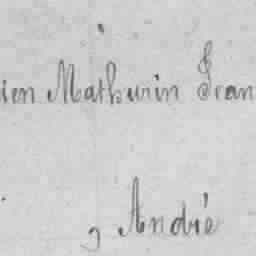 ien Mathurin Jean
André